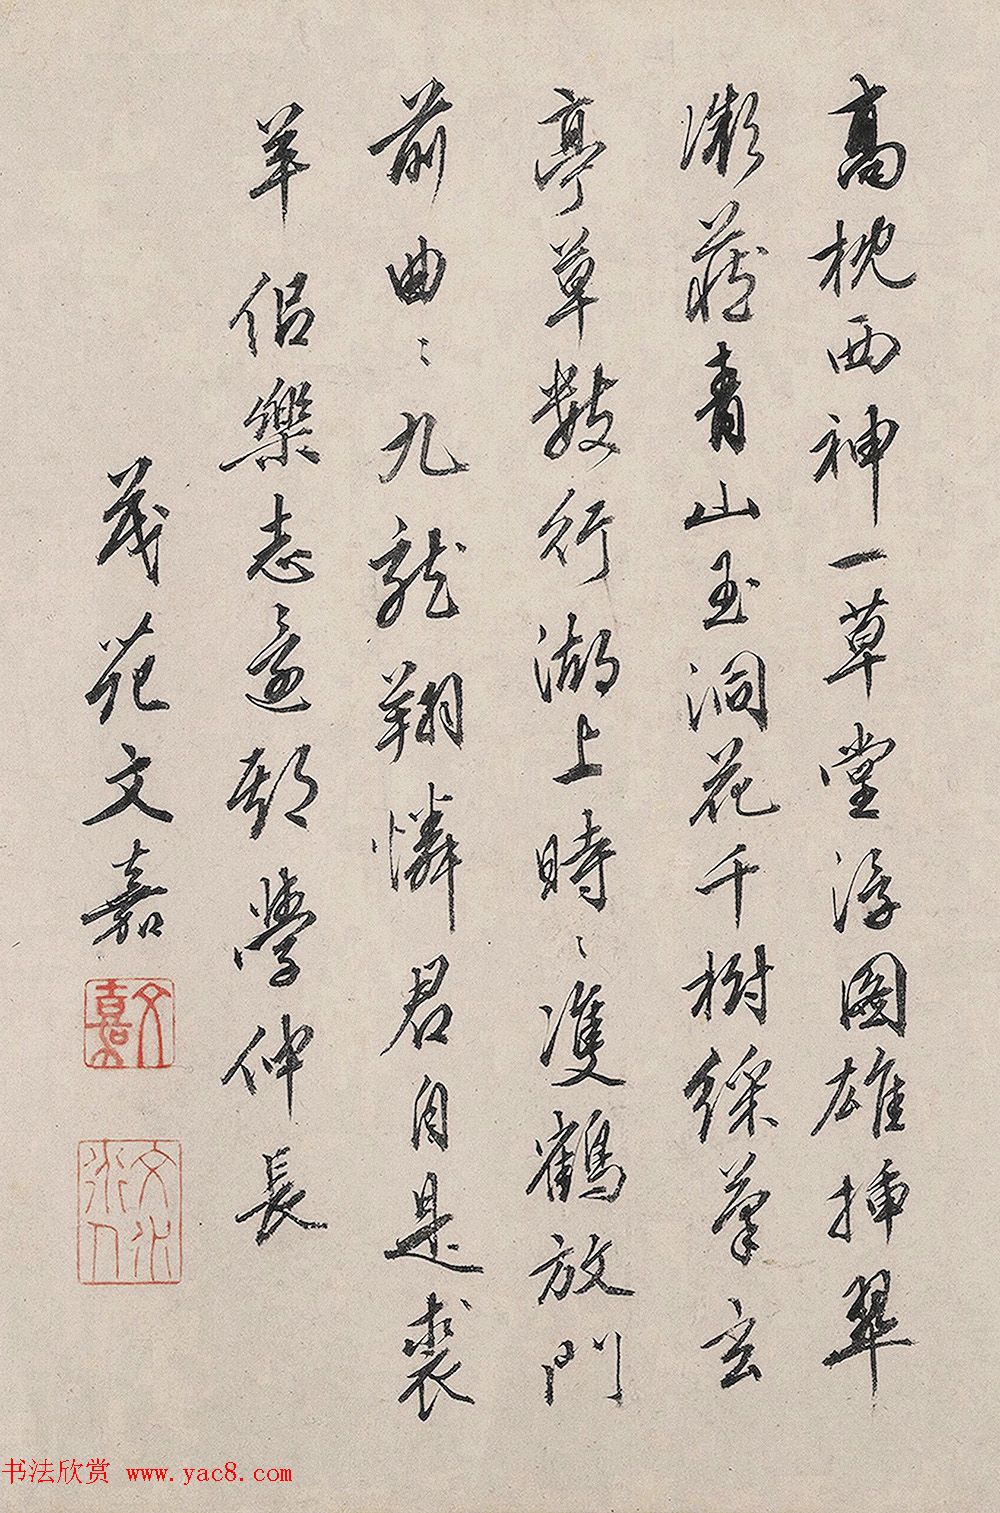 高枕西神一草堂浮圖雄插翠
微藏青山玉洞花千樹綵筆玄
亭草數行湖上時〻雙鶴放門
前曲〻九龍翔憐君自是裘
羊侶樂志還期學仲長
茂苑文嘉
文嘉
书法欣赏 www.yac8.com